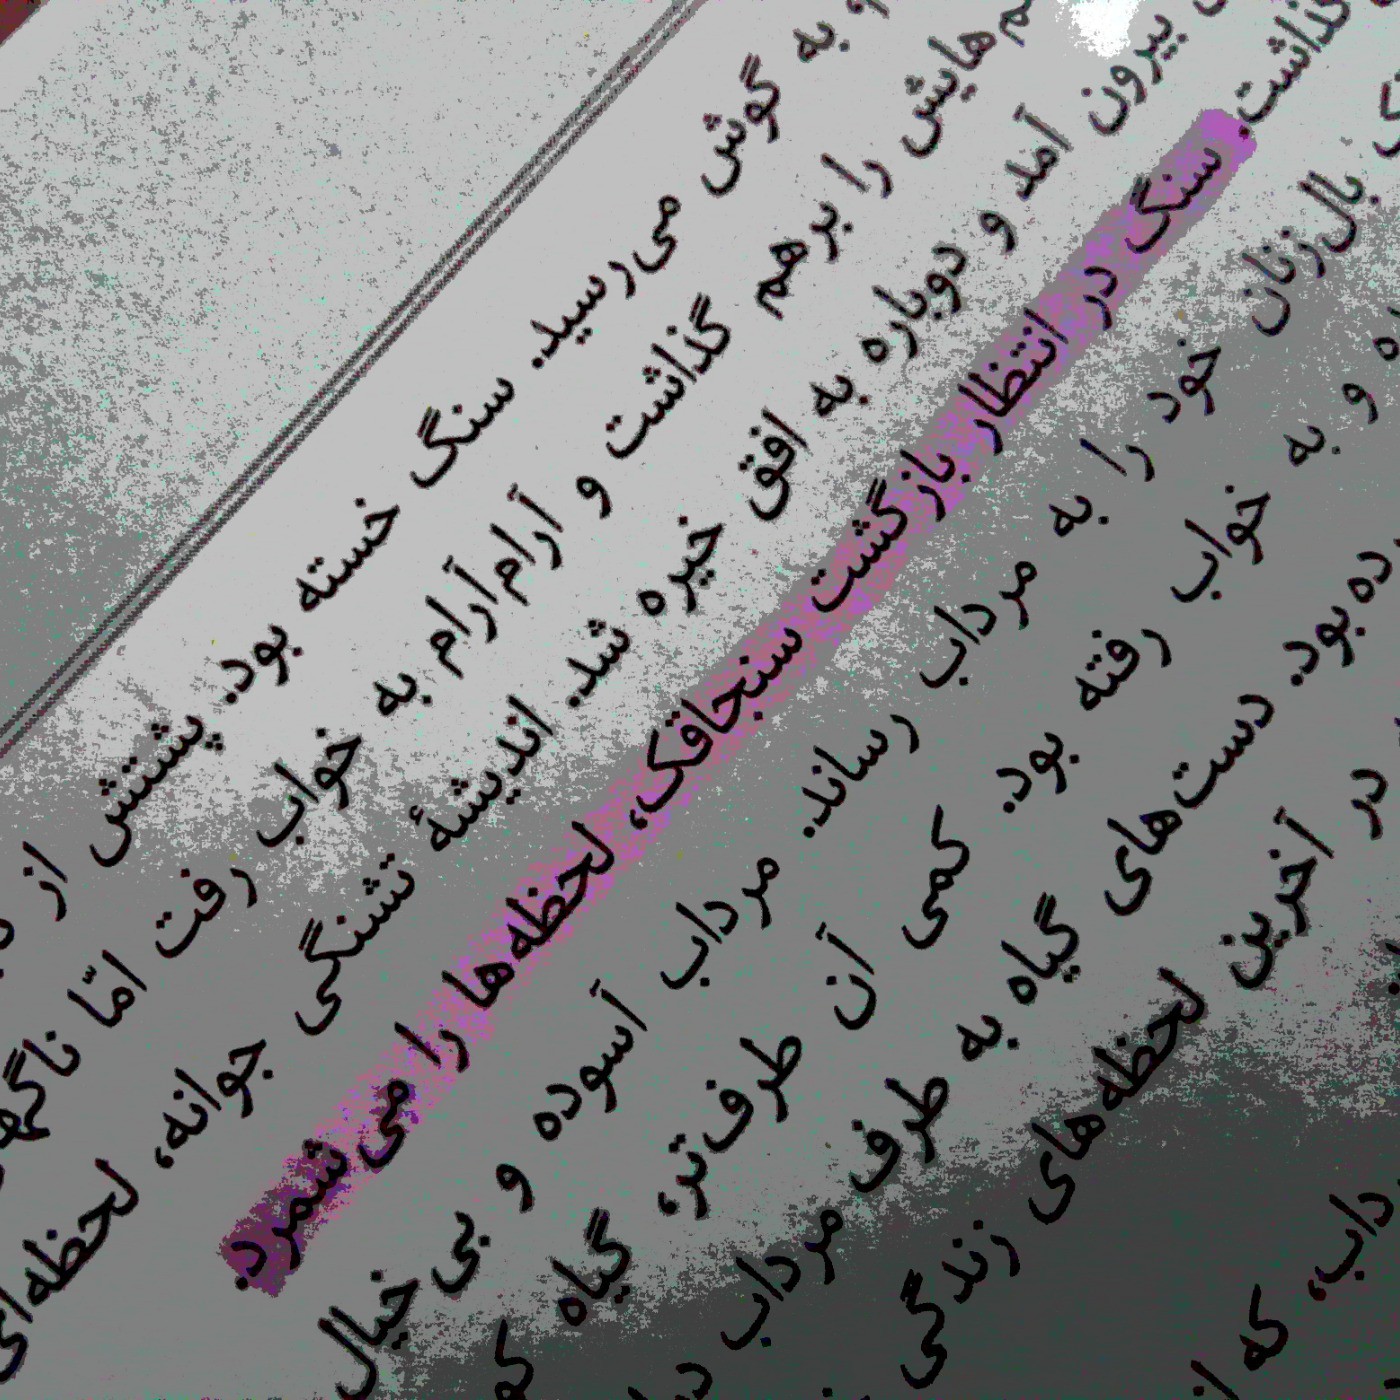 و به گوش می‌رسید. سنگ خسته بود. پشتش از
هایش را برهم گذاشت و آرام‌آرام به خواب رفت امّا
بیرون آمد و دوباره به افق خیره شد. اندیشهٔ تشنگی جوانه، لحظه‌ای
گذاشت. سنگ در انتظار بازگشت سنجاقک، لحظه‌ها را می‌شمرد.
بال‌زنان خود را به مرداب رساند. مرداب آسوده و بی‌خیال
و به خواب رفته بود. کمی آن طرف‌تر، گیاه
ده بود. دست‌های گیاه به طرف مرداب
در آخرین لحظه‌های زندگی
داب، که